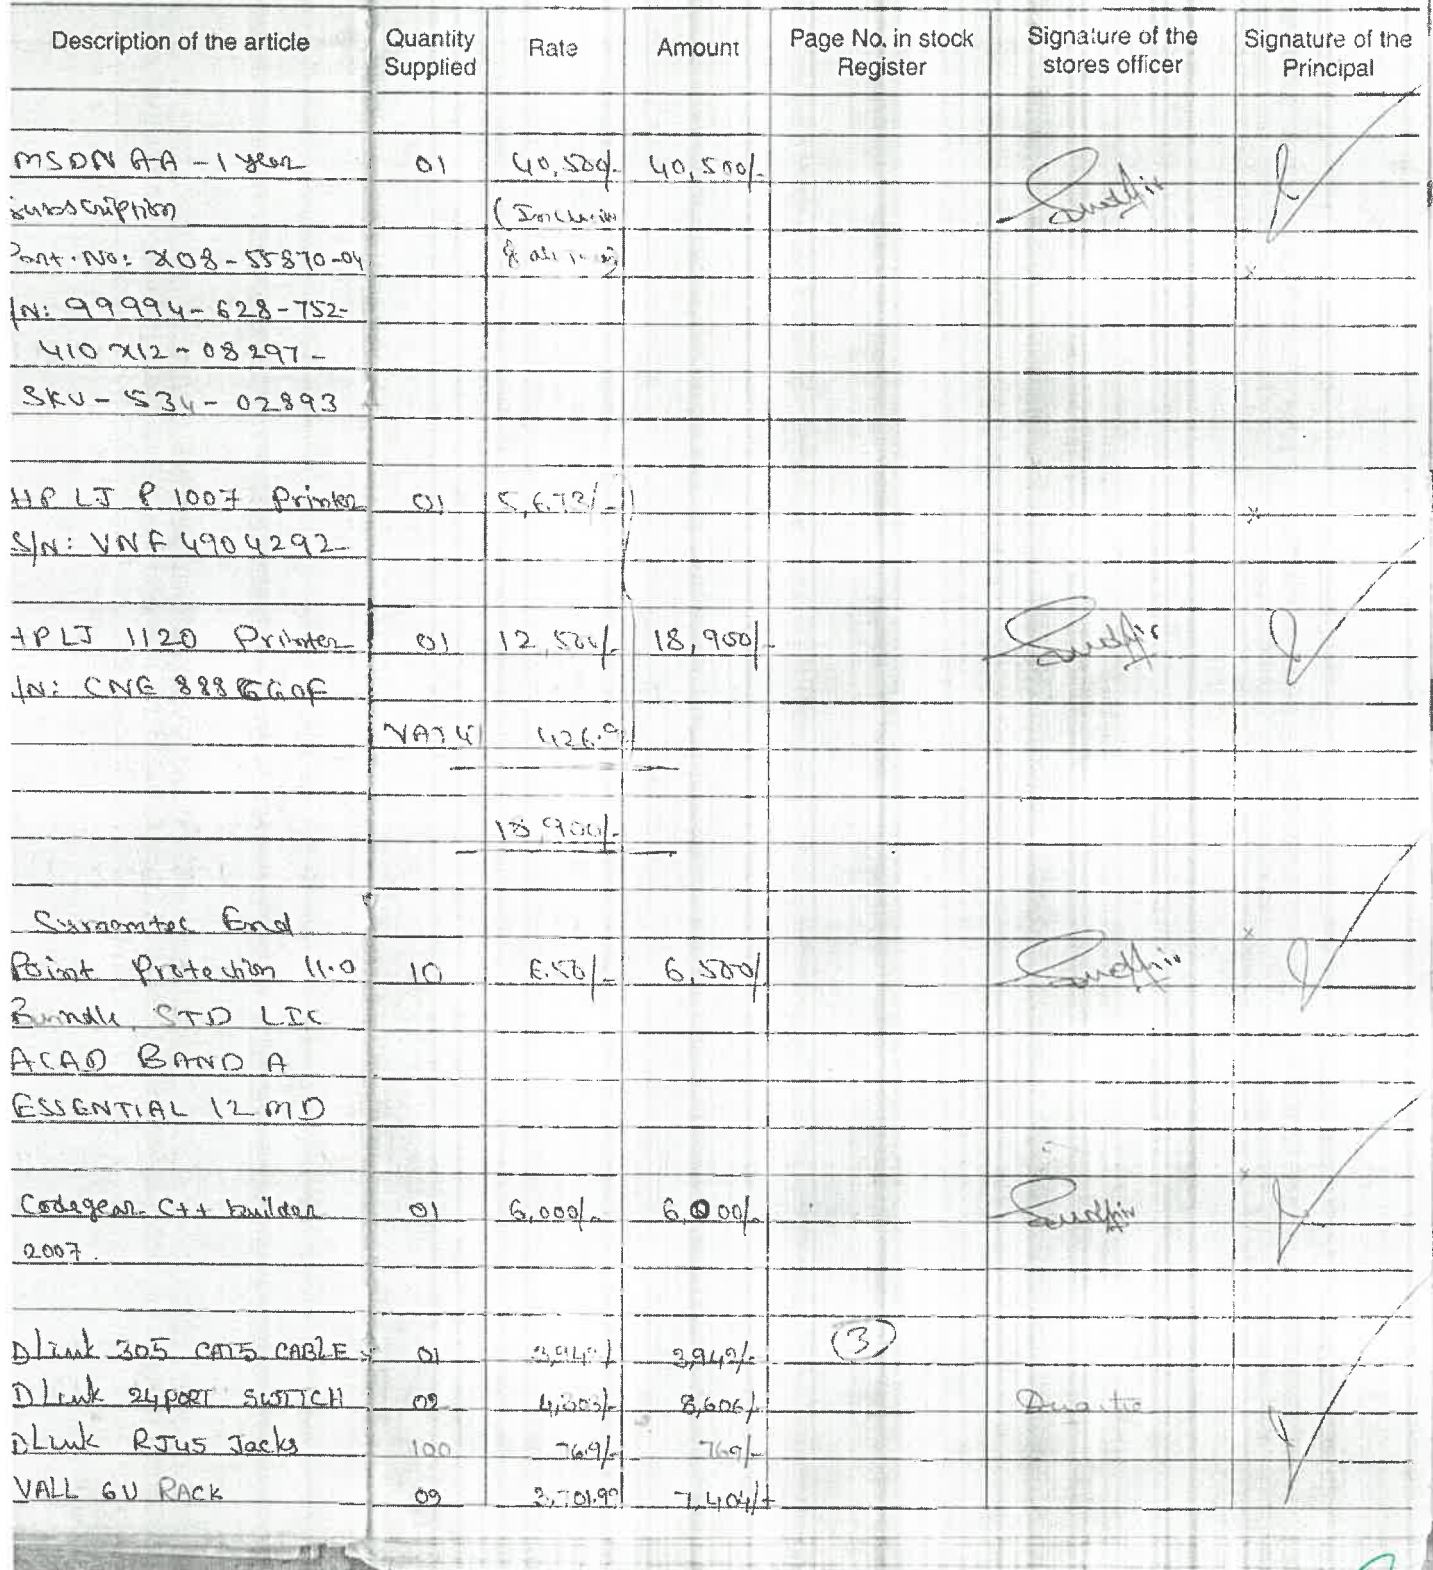 Description of the article Quantity Supplied Rate Amount Page No. in stock Register Signature of the stores officer Signature of the Principal
MSDN AA - 1 year 01 40,500/- 40,500/-
Subscription (Inclusive
Part. No: X08-55870-04 of all
/N: 99994-628-752-
410 X12-08297-
SKU-S34-02893
HP LJ P 1007 Printer 01 5,673/-
S/N: VNF 4904292
HP LJ 1120 Printer 01 12,500/- 18,900/-
/N: CNG
VAT 426.9
18,900/-
End
Point Protection 11.0 10 650/- 6,500/
Bundle, STD LIC
ACAD BAND A
ESSENTIAL 12 MO
Codegear C++ builder 01 6,000/- 6,000/-
2007.
Dlink 305 CAT5 CABLE 01 3,942/- (3)
DLink 24 PORT SWITCH 02 4,303/- 8,606/-
DLink RJ45 Jacks 100 769/- 769/-
VALL 6U RACK 7,404/-